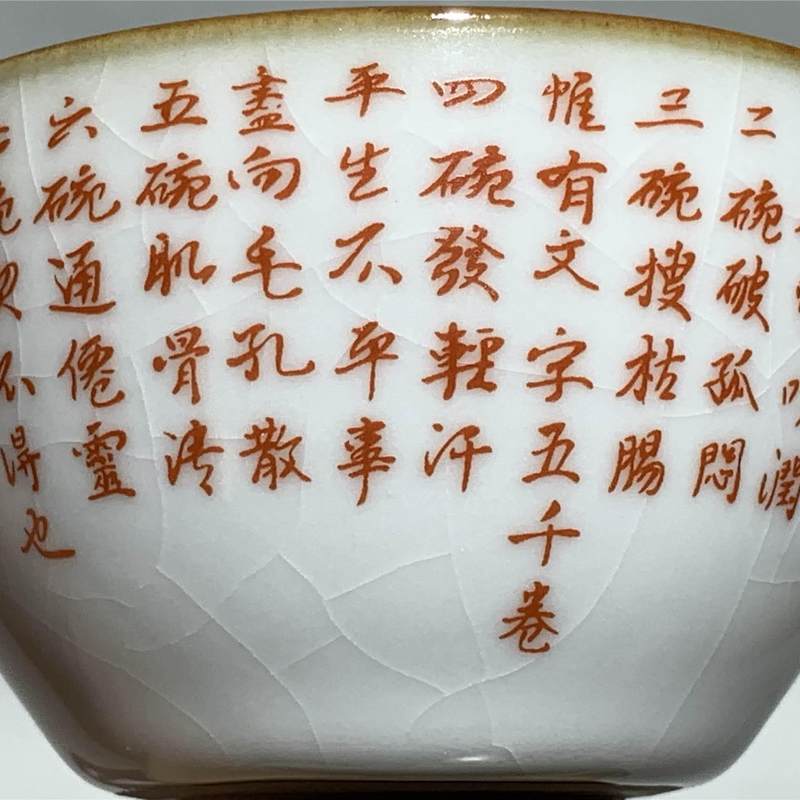 潤
二碗破孤悶
三碗搜枯腸
惟有文字五千卷
四碗發輕汗
平生不平事
盡向毛孔散
五碗肌骨清
六碗通僊靈
不得也